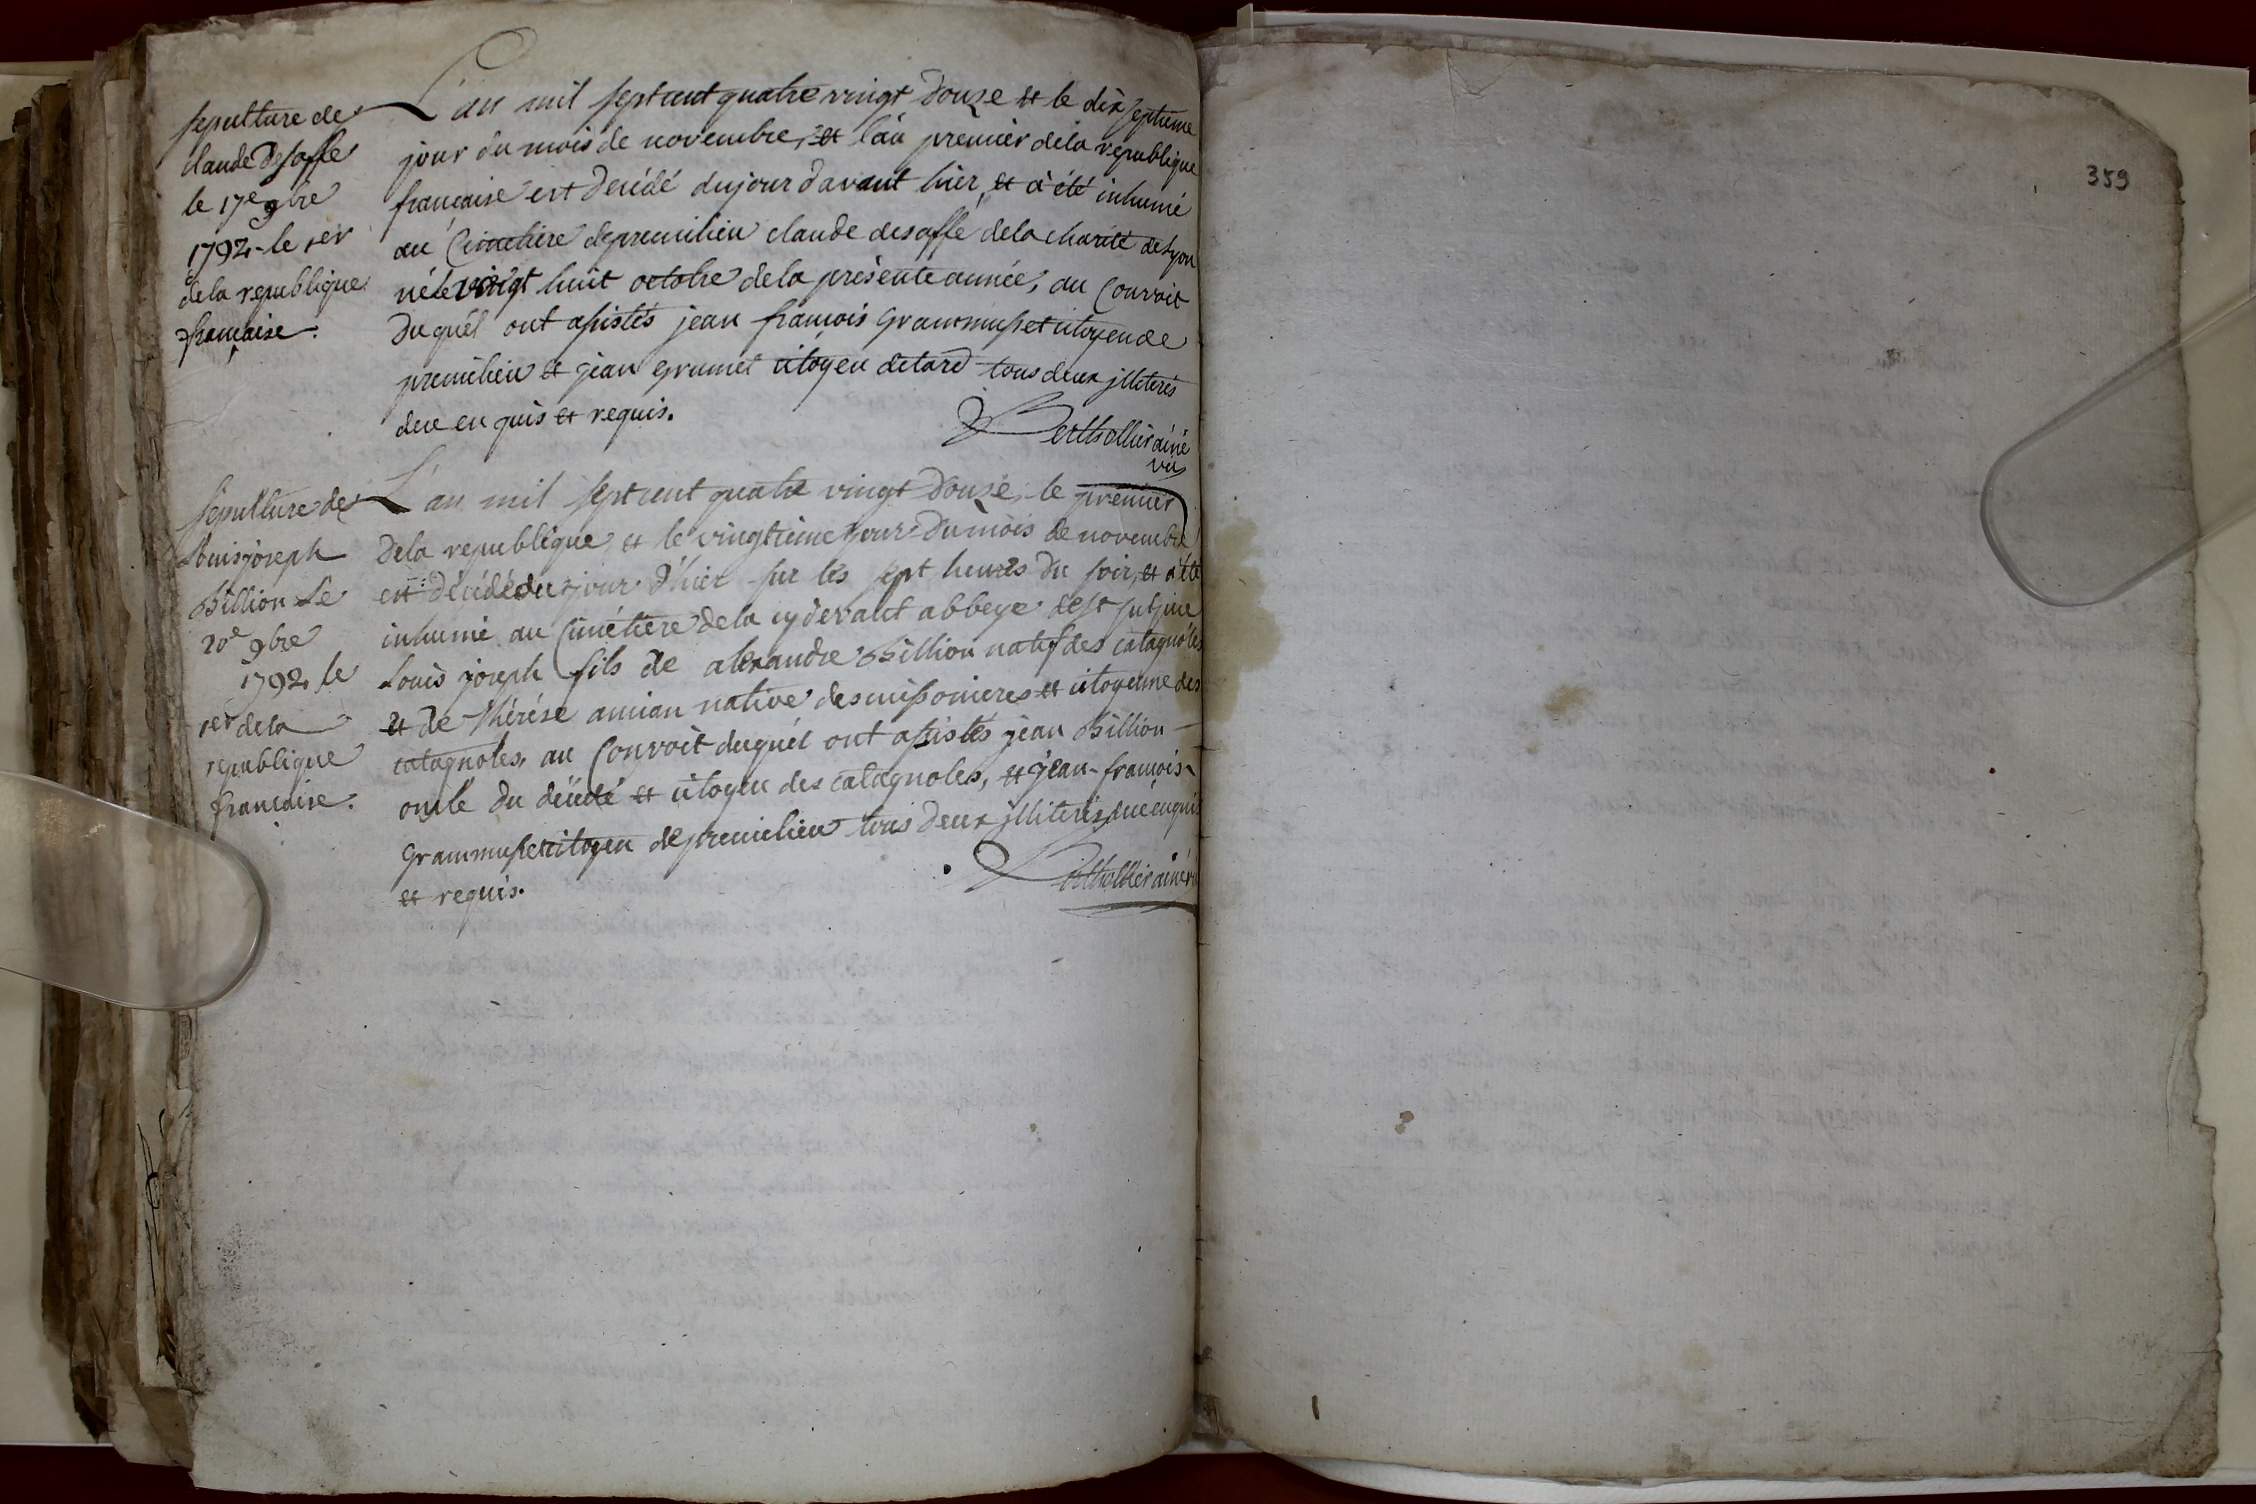 sepulture de
claude Desaffe
le 17e 9bre
1792, le 1er
de la republique
française.
L'an mil sept cent quatre vingt douze et le dix septieme
jour du mois de novembre, et l'an premier de la republique
française est decédé du jour d'avant hier, et a été inhumé
au Cimetière de premilieu claude desaffe de la charité de Lyon
né le vingt huit octobre de la présente année, au Convoit
duquél ont assistés jean françois Grammusset citoyen de
premilieu et jean grumet citoyen de tard tous deux jlliterés
de ce enquis et requis.
Berthollier ainé
vic
sépulture de
Louis joseph
Billion Le
20e 9bre
1792, le
1er de la
republique
française.
L'an mil sept cent quatre vingt douze, le premier
de la republique, et le vingtieme jour du mois de novembre
est décédé du jour d'hier sur les sept heures du soir, et a été
inhumé au Cimétière de la cy devant abbeye de st sulpice
Louis joseph fils de alexandre Billion natif des catagnoles
et de thérése amian native des missonieres et citoyenne des
catagnoles, au Convoit duquél ont assistés jean Billion
oncle du décédé et citoyen des catagnoles, et jean-françois
Grammusset citoyen de premilieu tous deux jlliterés de ce enquis
et requis.
Berthollier ainé v
359